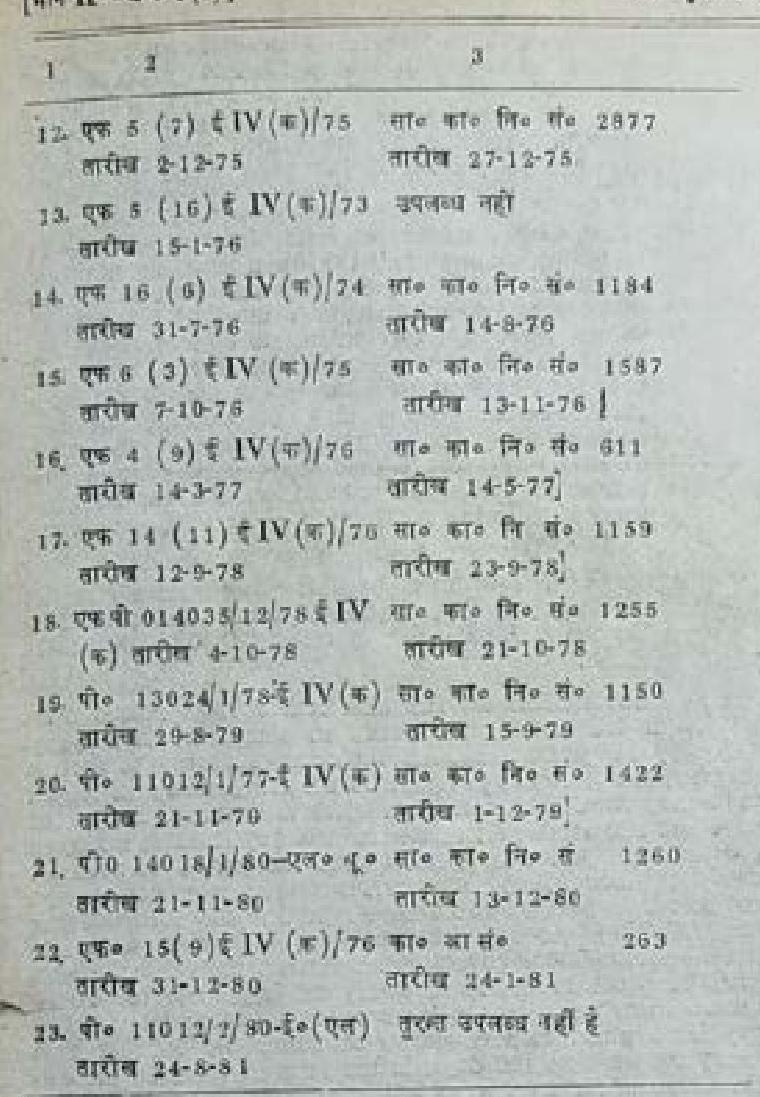 1 2 3
12. एफ 5 (7) ई IV(क)/75 सा० का० नि० सं० 2877
तारीख 2-12-75 तारीख 27-12-75
13. एफ 5 (16) ई IV(क)/73 उपलब्ध नहीं
तारीख 15-1-76
14. एफ 16 (6) ई IV(क)/74 सा० का० नि० सं० 1184
तारीख 31-7-76 तारीख 14-8-76
15. एफ 6 (3) ई IV (क)/75 सा० का० नि० सं० 1587
तारीख 7-10-76 तारीख 13-11-76
16. एफ 4 (9) ई IV(क)/76 सा० का० नि० सं० 611
तारीख 14-3-77 तारीख 14-5-77
17. एफ 14 (11) ई IV(क)/76 सा० का० नि सं० 1159
तारीख 12-9-78 तारीख 23-9-78
18. एफ पी 014035/12/78 ई IV सा० का० नि० सं० 1255
(क) तारीख 4-10-78 तारीख 21-10-78
19. पी० 13024/1/78-ई IV(क) सा० का० नि० सं० 1150
तारीख 29-8-79 तारीख 15-9-79
20. पी० 11012/1/77-ई IV(क) सा० का० नि० सं० 1422
तारीख 21-11-79 तारीख 1-12-79
21. पी0 14018/1/80-एल० यू० सा० का० नि० सं 1260
तारीख 21-11-80 तारीख 13-12-80
22. एफ० 15(9)ई IV (क)/76 का० आ सं० 263
तारीख 31-12-80 तारीख 24-1-81
23. पी० 11012/2/80-ई०(एल) तुरन्त उपलब्ध नहीं है
तारीख 24-8-81